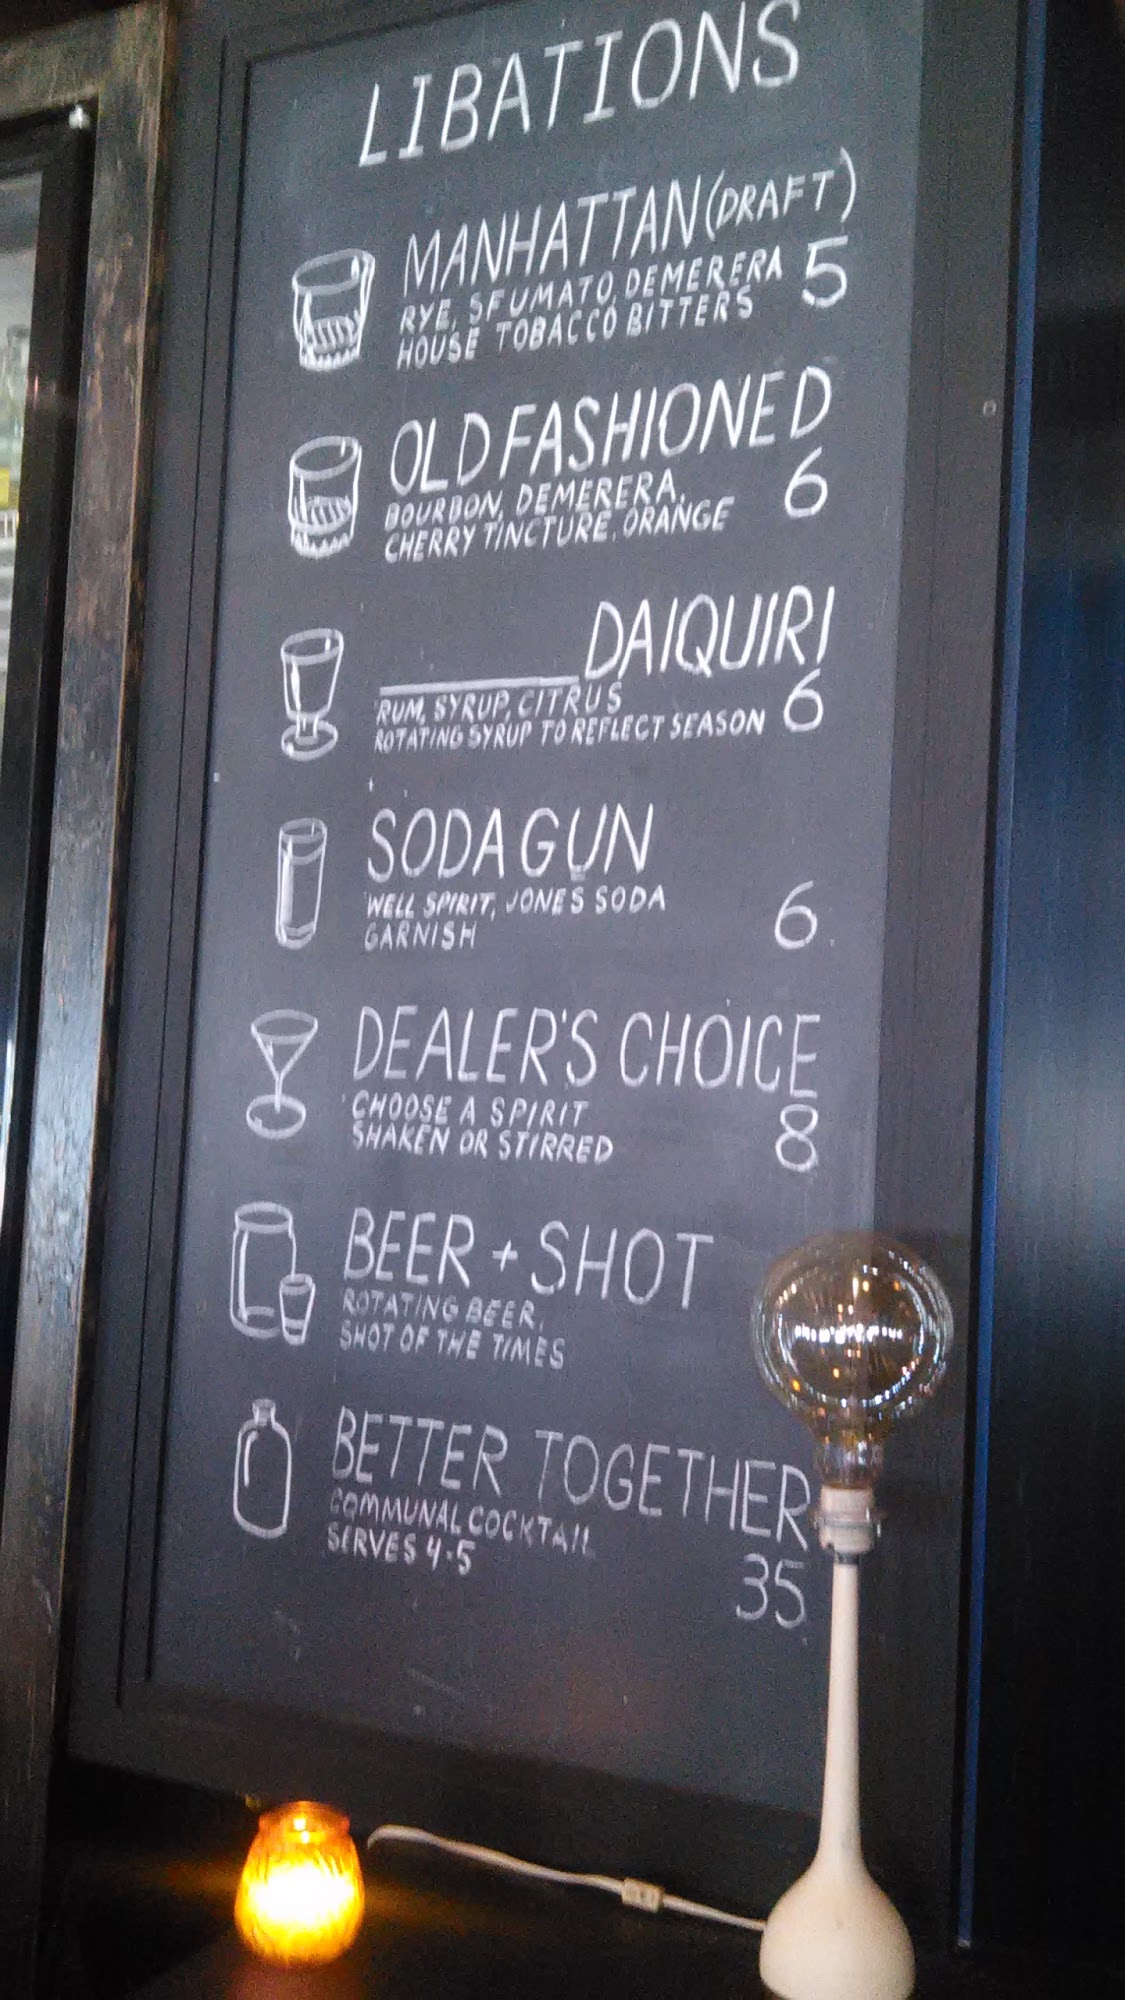 LIBATIONS
MANHATTAN (DRAFT)
RYE, SFUMATO, DEMERERA 5
HOUSE TOBACCO BITTERS
OLD FASHIONED
BOURBON, DEMERERA, 6
CHERRY TINCTURE, ORANGE
________ DAIQUIRI
RUM, SYRUP, CITRUS 6
ROTATING SYRUP TO REFLECT SEASON
SODA GUN
WELL SPIRIT, JONES SODA 6
GARNISH
DEALER'S CHOICE
CHOOSE A SPIRIT 8
SHAKEN OR STIRRED
BEER + SHOT
ROTATING BEER,
SHOT OF THE TIMES
BETTER TOGETHER
COMMUNAL COCKTAIL
SERVES 4-5 35